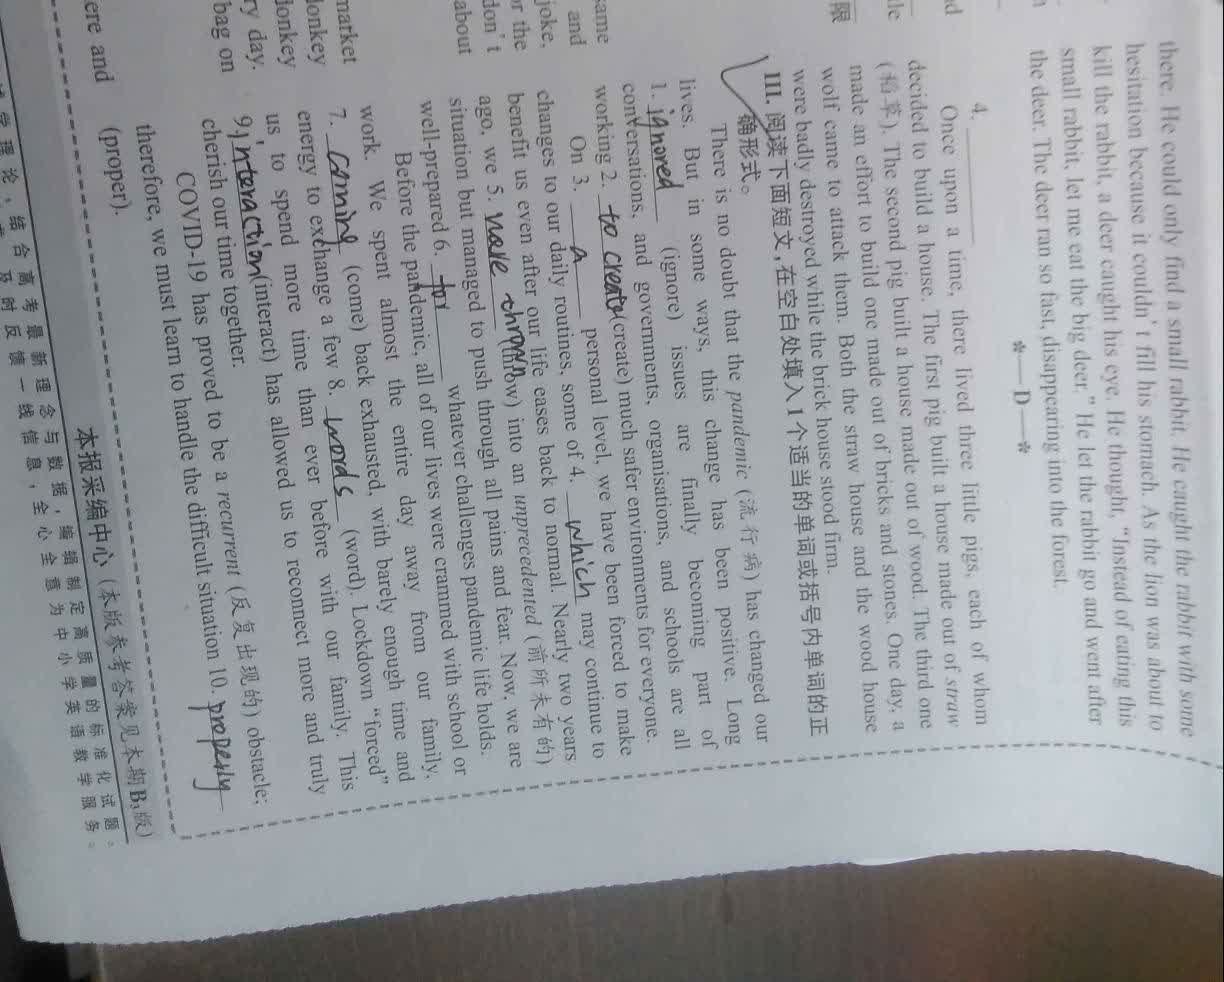 there. He could only find a small rabbit. He caught the rabbit with some
hesitation because it couldn't fill his stomach. As the lion was about to
kill the rabbit, a deer caught his eye. He thought, "Instead of eating this
small rabbit, let me eat the big deer." He let the rabbit go and went after
the deer. The deer ran so fast, disappearing into the forest.
*—D—*
4.
Once upon a time, there lived three little pigs, each of whom
decided to build a house. The first pig built a house made out of straw
(稻草). The second pig built a house made out of wood. The third one
made an effort to build one made out of bricks and stones. One day, a
wolf came to attack them. Both the straw house and the wood house
were badly destroyed while the brick house stood firm.
III. 阅读下面短文,在空白处填入1个适当的单词或括号内单词的正
确形式。
There is no doubt that the pandemic (流行病) has changed our
lives. But in some ways, this change has been positive. Long
1. ignored (ignore) issues are finally becoming part of
conversations, and governments, organisations, and schools are all
working 2. to create (create) much safer environments for everyone.
On 3. a personal level, we have been forced to make
changes to our daily routines, some of 4. which may continue to
benefit us even after our life eases back to normal. Nearly two years
ago, we 5. have thrown (throw) into an unprecedented (前所未有的)
situation but managed to push through all pains and fear. Now, we are
well-prepared 6. for whatever challenges pandemic life holds.
Before the pandemic, all of our lives were crammed with school or
work. We spent almost the entire day away from our family,
7. coming (come) back exhausted, with barely enough time and
energy to exchange a few 8. words (word). Lockdown "forced"
us to spend more time than ever before with our family. This
9. interaction (interact) has allowed us to reconnect more and truly
cherish our time together.
COVID-19 has proved to be a recurrent (反复出现的) obstacle;
therefore, we must learn to handle the difficult situation 10. properly
(proper).
本报采编中心 (本版参考答案见本期B3版)
编辑制定高质量的标准化试题。
结合高考最新理念与数据,
及时反馈一线信息,全心全意为中小学英语教学服务。
nd
de
限
same
and
joke,
or the
don't
about
market
donkey
donkey
ry day.
bag on
ere and